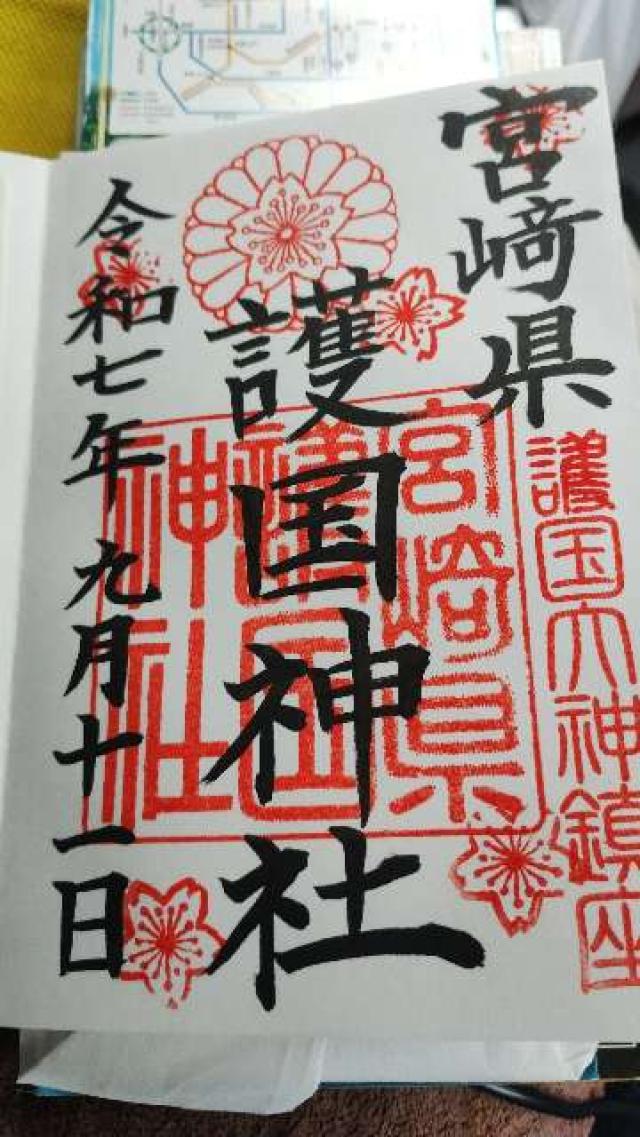 宮﨑県
護国大神鎮座
護国神社
宮崎県護国神社
令和七年九月十一日